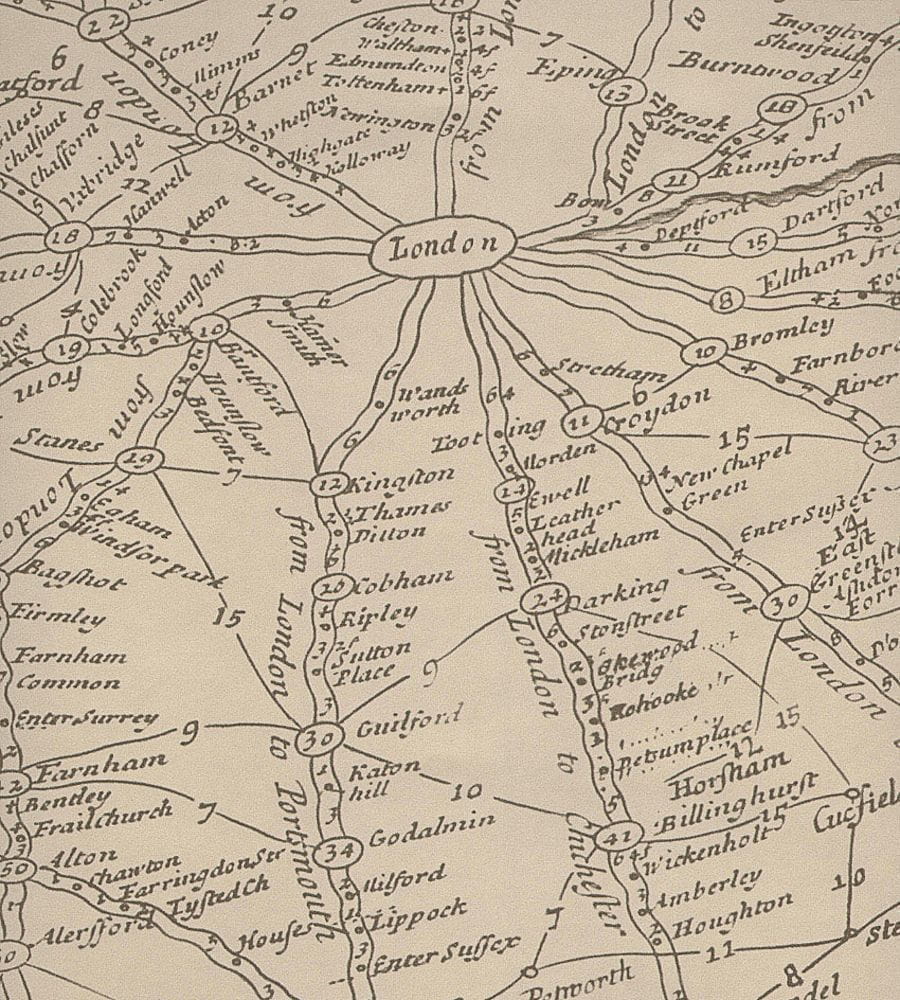 22
10
7
Cheston
Waltham
Edmundton
Tottenham
Newington
Coney
Mimms
9
Barnet
12
Whetston
Highgate
Holloway
6
8
Chalfunt
Chalforn
Uxbridge
12
Hanwell
Acton
18
London
from
from
to
Eping
15
London
Ingoglton
Shenfeild
Burntwood
18
from
Brook
Street
Rumford
21
Bow
London
Deptford
15
Dartford
8
Eltham
10
Bromley
Farnboro
River
23
Colebrook
Longford
Hounslow
19
10
from
Hamer
Smith
Brantford
Hounslow
Bedfont
7
Stanes
29
from
London
Egham
Windsor park
Bagshot
Firmley
Farnham
Common
Enter Surrey
9
Farnham
Bentley
Frailchurch
7
50
Alton
Chawton
Farringdon Str
Tysted Ch
Alersford
Houses
15
Wands
worth
12
Kingston
Thames
Ditton
20
Cobham
Ripley
Sutton
Place
9
30
Guilford
Katon
hill
10
34
Godalmin
Milford
Lippock
Enter Sussex
from London to Portsmouth
Stretham
11
Croydon
6
15
New Chapel
Green
Enter Sussex
14
East
30
from
London
Tooting
Morden
14
Ewell
Leather
head
Mickleham
24
Darking
Stonstreet
Bridg
Rohooke
Betsumplace
15
12
Horsham
41
Billinghurst
15
Wickenholt
Amberley
Houghton
from London to Chichester
10
11
7
Petworth
8